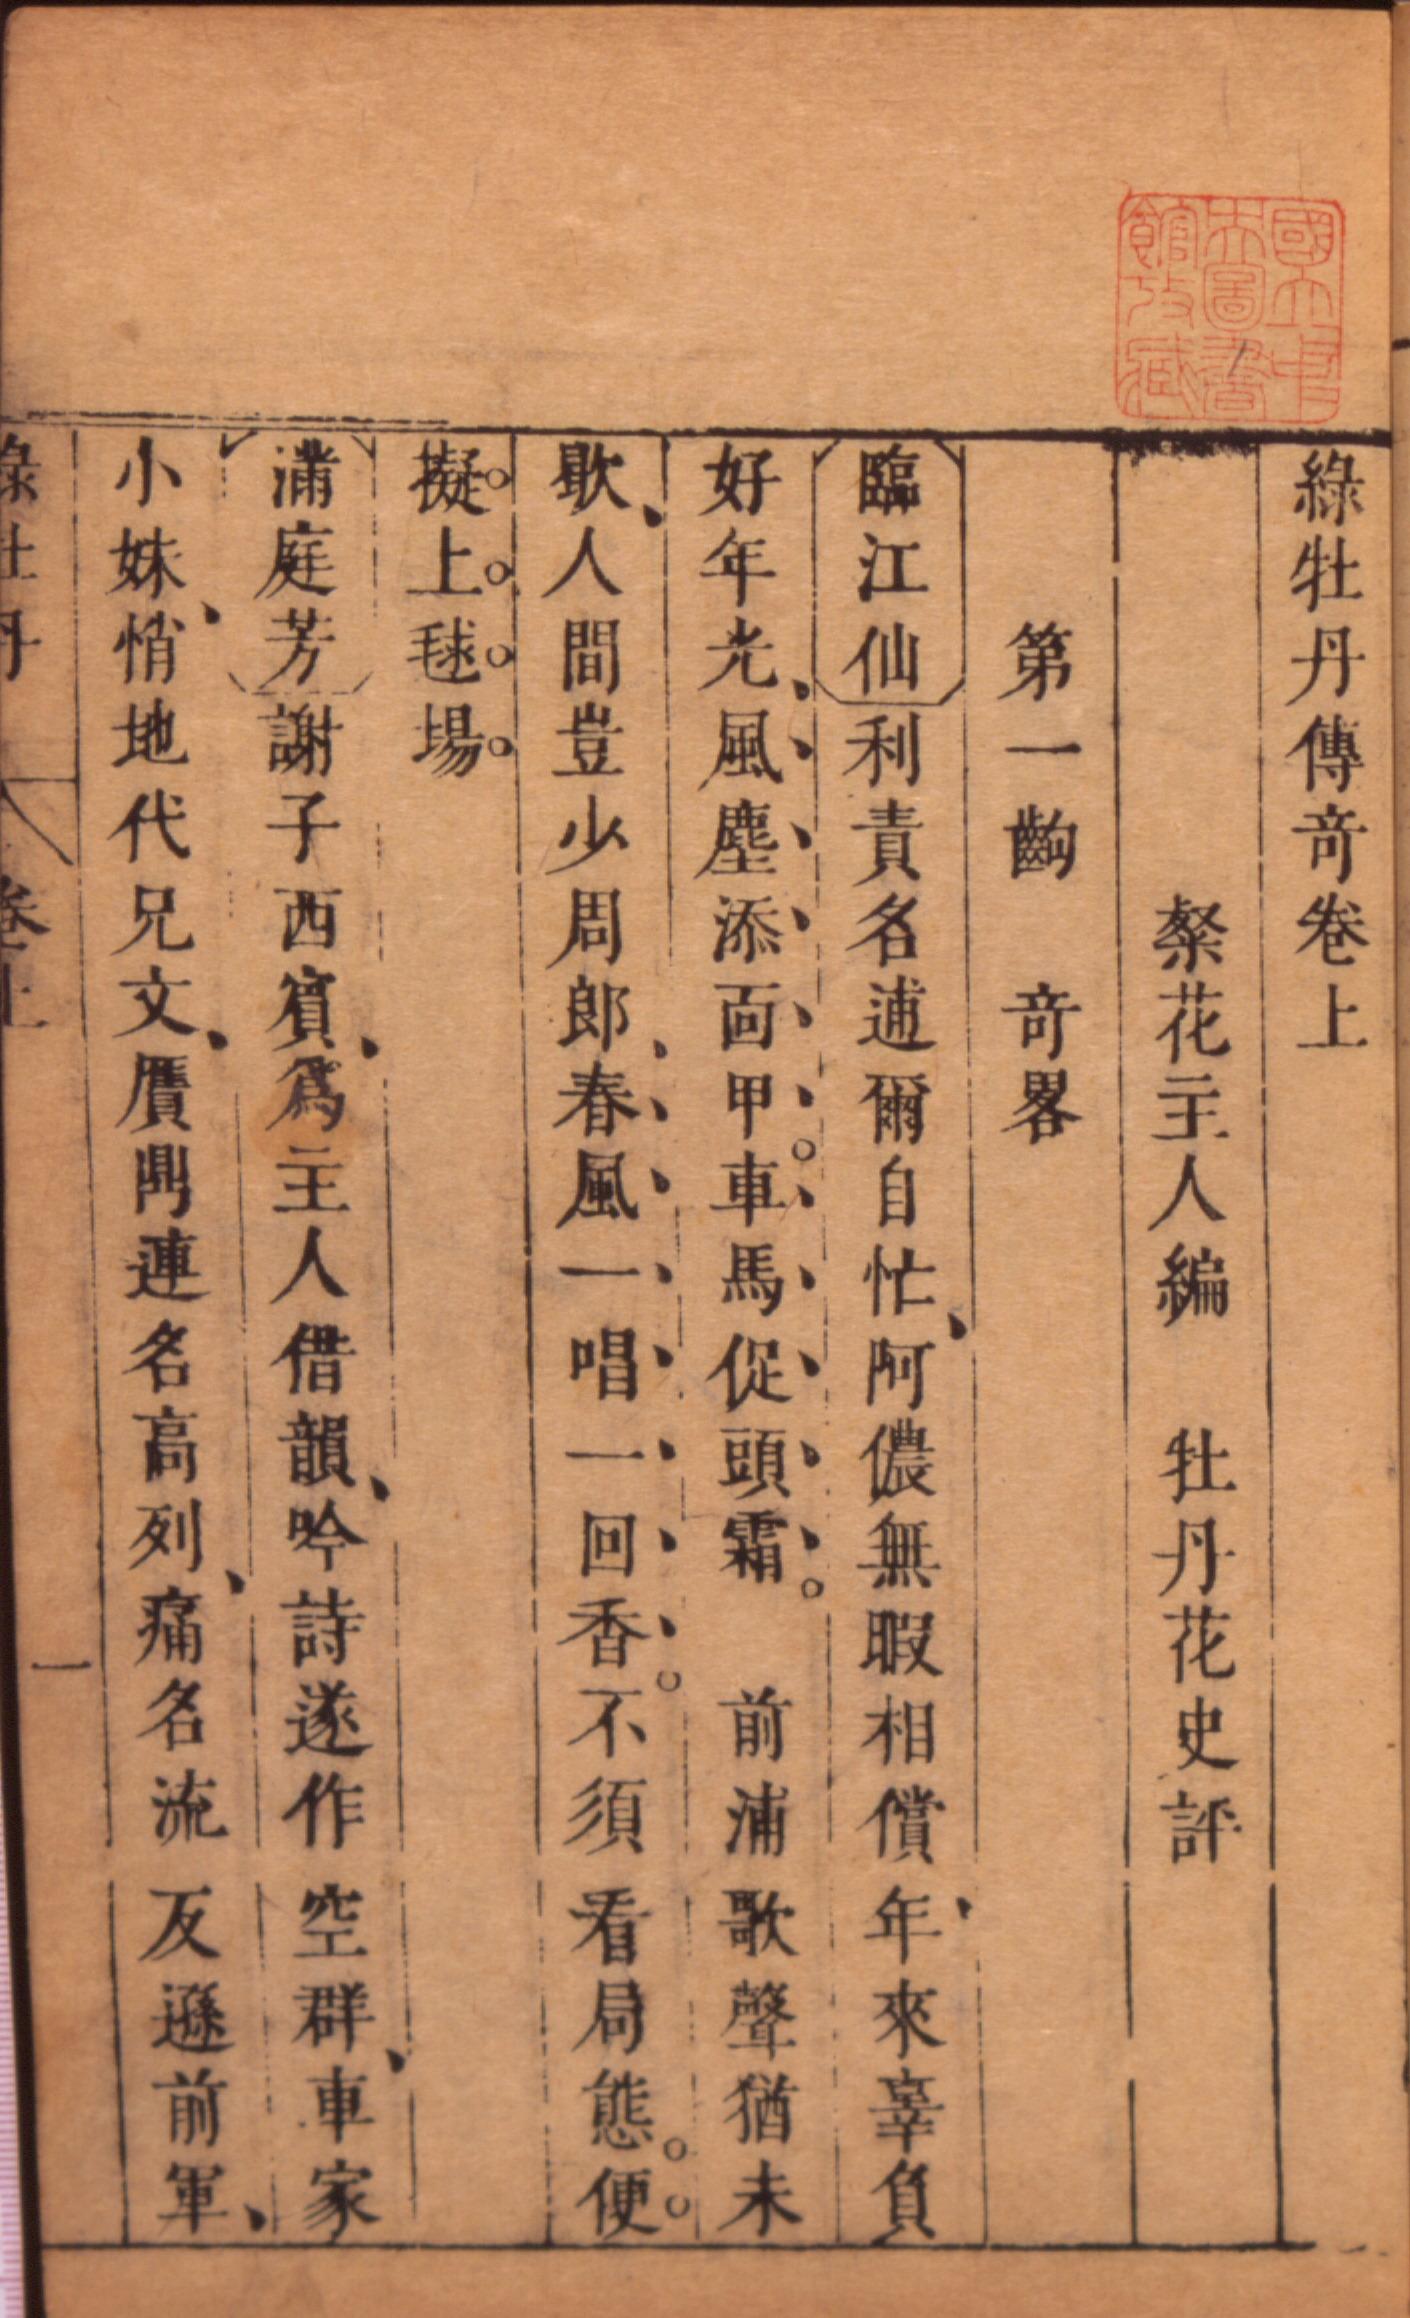 國立中
央圖書
館收藏
綠牡丹傳奇卷上
粲花主人編　牡丹花史評
第一齣　奇畧
臨江仙利責名逋爾自忙、阿儂無暇相償、年來辜負
好年光、風塵添面甲。車馬促頭霜。　前浦歌聲猶未
歇、人間豈少周郎、春風一唱一回香。不須看局態。便
擬上毬場。
滿庭芳謝子西賓、爲主人借韻、吟詩遂作空群、車家
小妹、悄地代兄文、贋鼎連名高列、痛名流反遜前軍、
綠牡丹　卷上　一